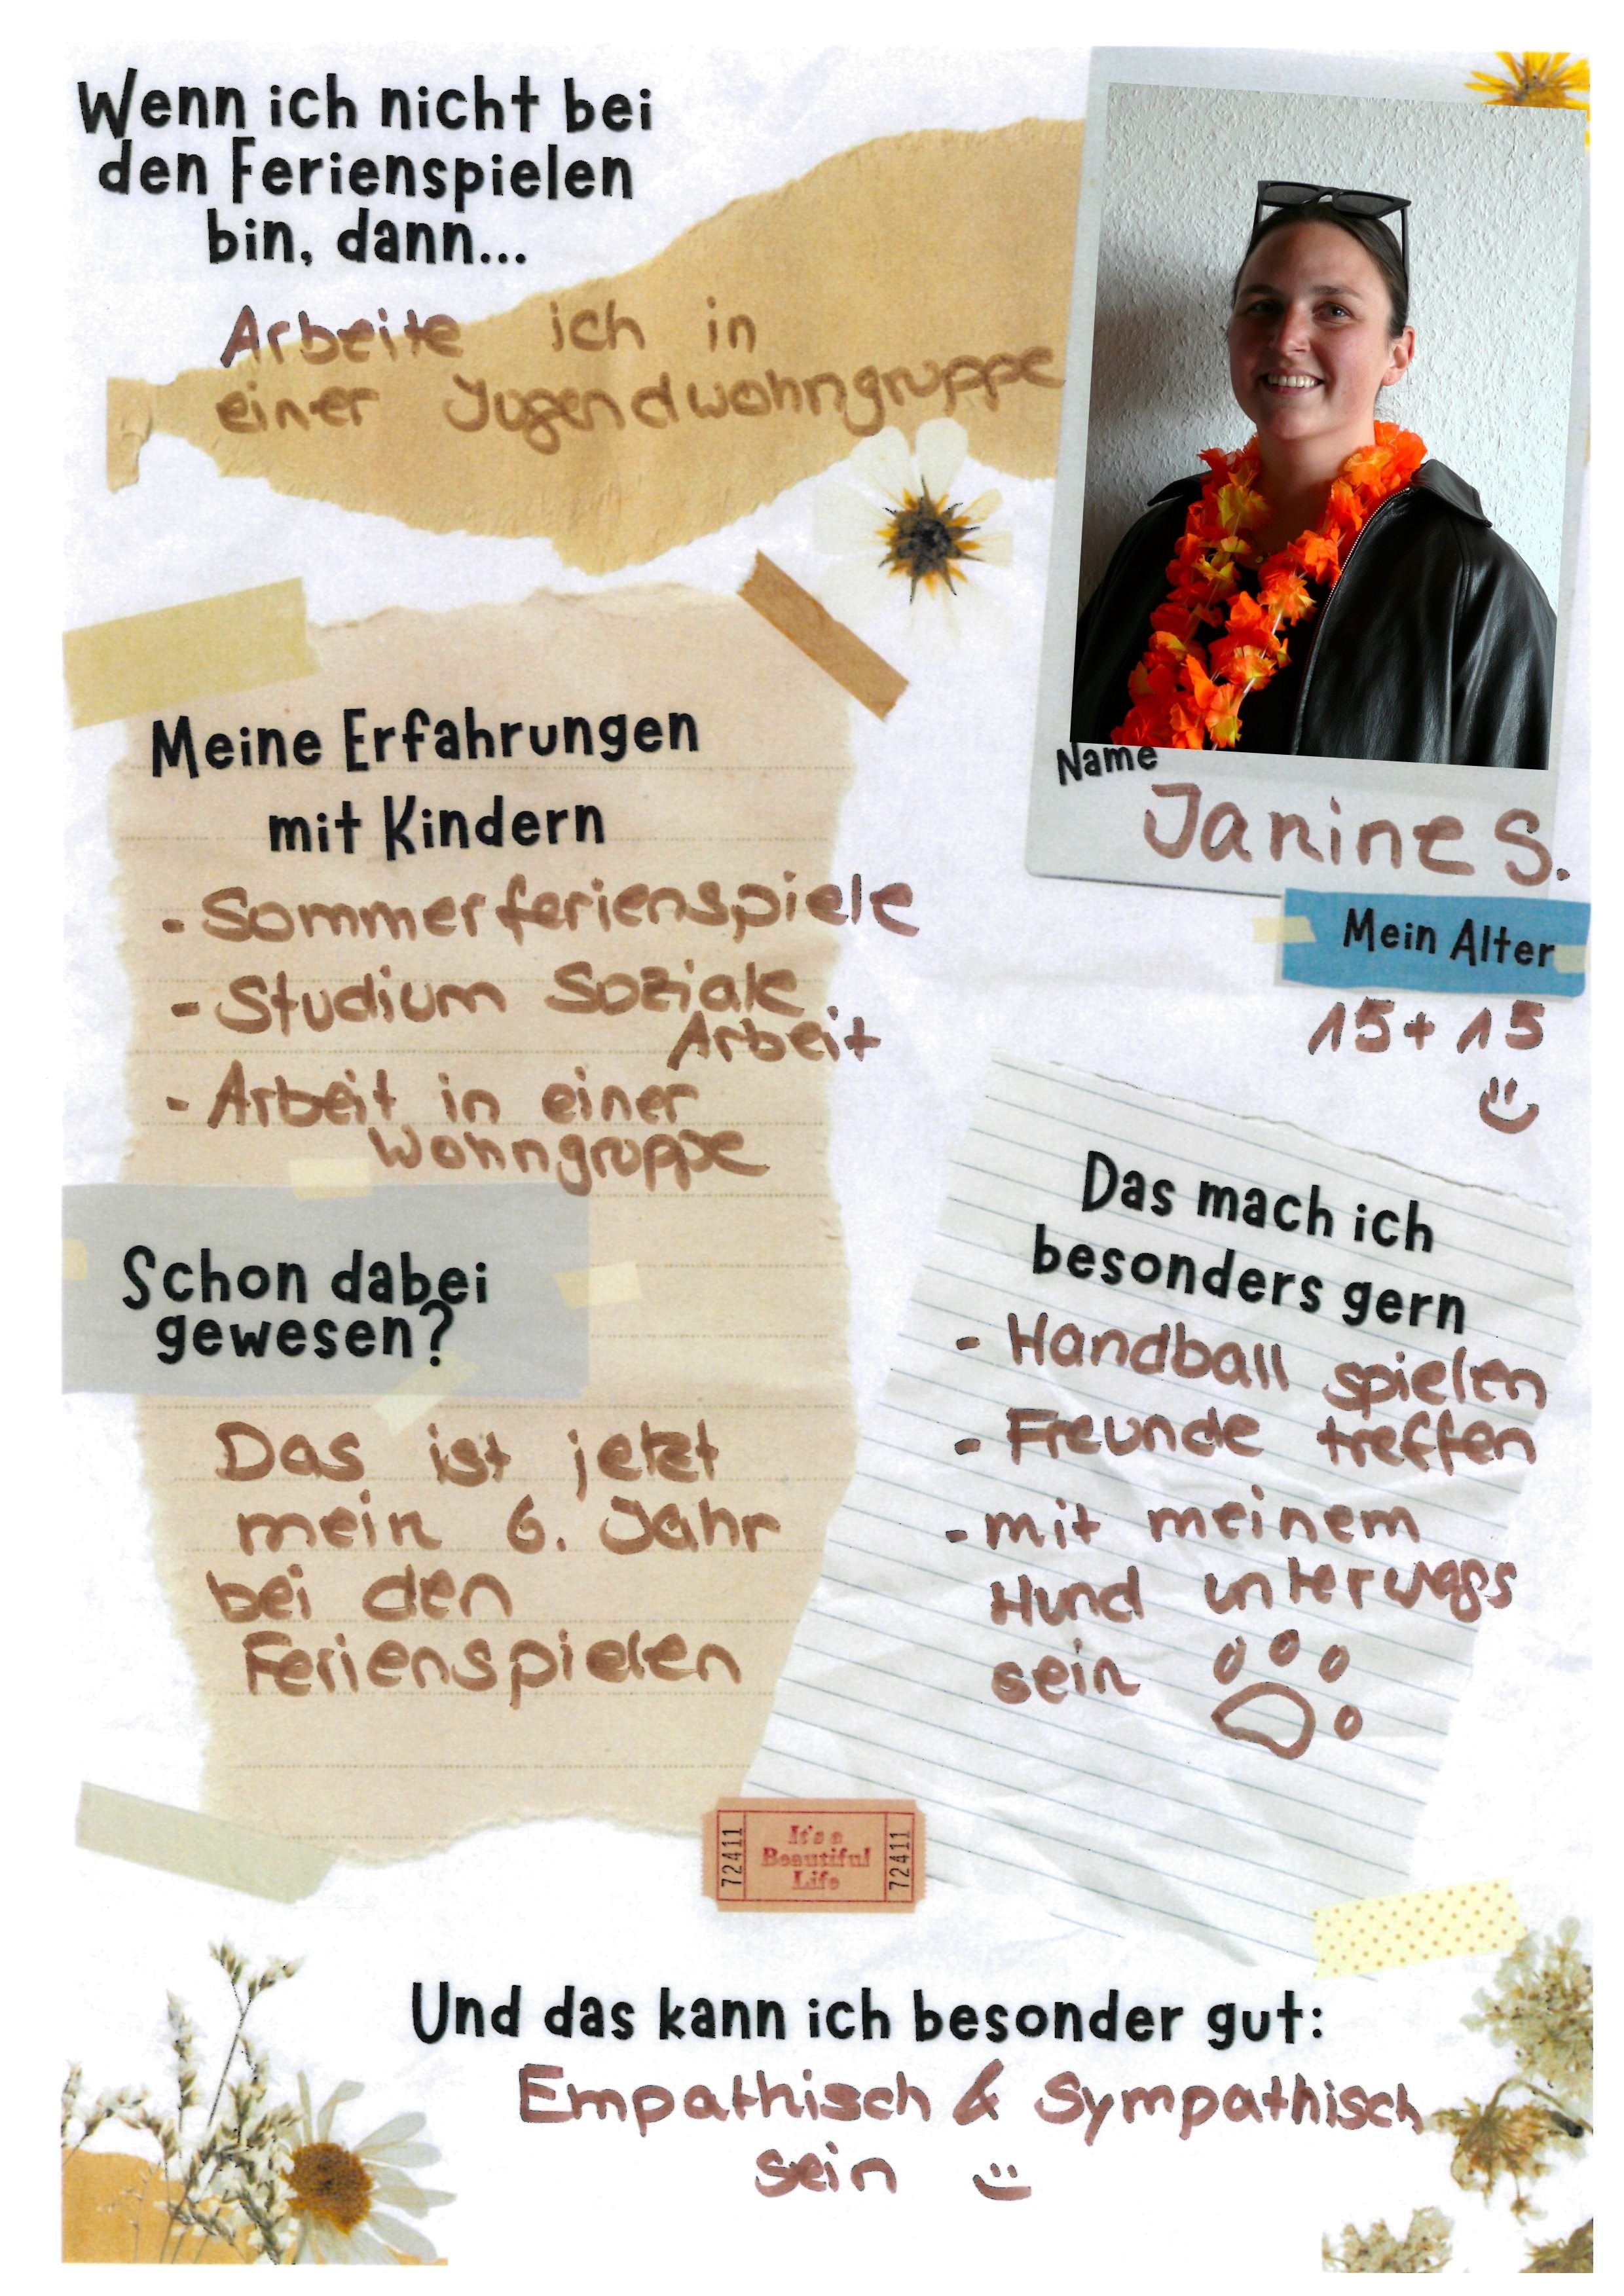 Wenn ich nicht bei
den Ferienspielen
bin, dann...
Arbeite ich in
einer Jugendwohngruppe
Name
Janine S.
Mein Alter
15+15
Meine Erfahrungen
mit Kindern
- Sommerferienspiele
- Studium Soziale
Arbeit
- Arbeit in einer
Wohngruppe
Schon dabei
gewesen?
Das ist jetzt
mein 6. Jahr
bei den
Ferienspielen
Das mach ich
besonders gern
- Handball spielen
- Freunde treffen
- mit meinem
Hund unterwegs
sein
72411
It's a
Beautiful
Life
72411
Und das kann ich besonder gut:
Empathisch & Sympathisch
sein